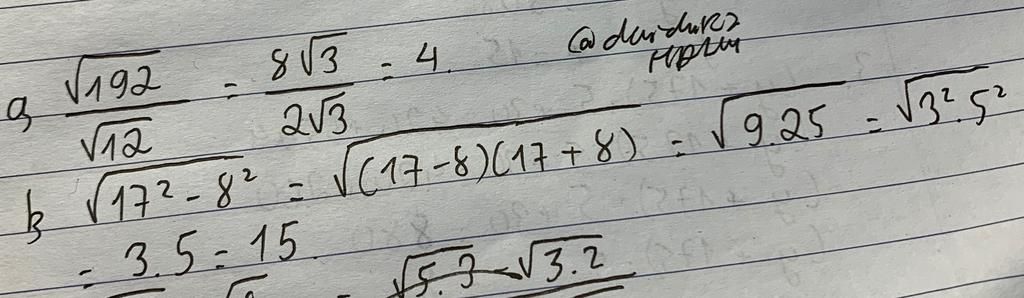 a, √192/√12 = 8√3/2√3 = 4.
b, √17² - 8² = √(17-8)(17+8) = √9.25 = √3².5²
= 3.5 = 15.
= √5.3 - √3.2